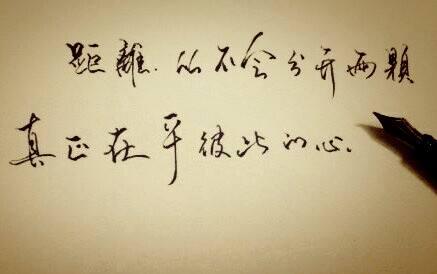 距離.从不会分开两颗
真正在乎彼此的心.